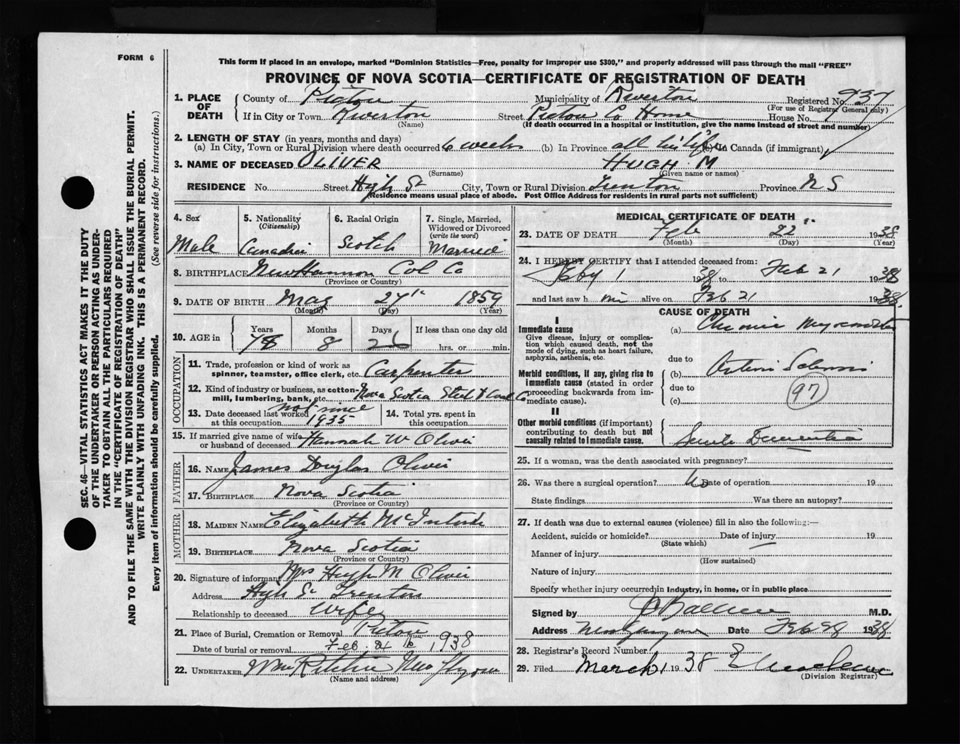 FORM 6
This form if placed in an envelope, marked "Dominion Statistics—Free, penalty for improper use $300," and properly addressed will pass through the mail "FREE"
PROVINCE OF NOVA SCOTIA—CERTIFICATE OF REGISTRATION OF DEATH
1. PLACE OF DEATH County of Pictou Municipality of Riverton Registered No. 937
(For use of Registrar General only)
If in City or Town Riverton Street Pictou Co Home House No.
(Name) (If death occurred in a hospital or institution, give the name instead of street and number)
2. LENGTH OF STAY (in years, months and days)
(a) In City, Town or Rural Division where death occurred 6 weeks (b) In Province all his life (c) In Canada (if immigrant)
3. NAME OF DECEASED OLIVER HUGH. M
(Surname) (Given name or names)
RESIDENCE No. Street High St City, Town or Rural Division Trenton Province N S
(Residence means usual place of abode. Post Office Address for residents in rural parts not sufficient)
4. Sex Male
5. Nationality (Citizenship) Canadian
6. Racial Origin Scotch
7. Single, Married, Widowed or Divorced (write the word) Married
8. BIRTHPLACE Col Co
(Province or Country)
9. DATE OF BIRTH 27th 1859
(Month) (Day) (Year)
10. AGE in Years 78 Months 8 Days 26 If less than one day old hrs. or min.
OCCUPATION
11. Trade, profession or kind of work as spinner, teamster, office clerk, etc. Carpenter
12. Kind of industry or business, as cotton-mill, lumbering, bank, etc. Nova Scotia Steel & Coal Co
13. Date deceased last worked at this occupation not since 1935
14. Total yrs. spent in this occupation
15. If married give name of wife or husband of deceased Hannah W Oliver
FATHER
16. NAME James Douglas Oliver
17. BIRTHPLACE Nova Scotia
(Province or Country)
MOTHER
18. MAIDEN NAME Elizabeth McIntosh
19. BIRTHPLACE Nova Scotia
(Province or Country)
20. Signature of informant Mrs Hugh M Oliver
Address High St Trenton
Relationship to deceased wife
21. Place of Burial, Cremation or Removal Pictou
Date of burial or removal Feb. 24 th 1938
22. UNDERTAKER Wm Ritchie New Glasgow
(Name and address)
MEDICAL CERTIFICATE OF DEATH
23. DATE OF DEATH Feb 22 1938
(Month) (Day) (Year)
24. I HEREBY CERTIFY that I attended deceased from
Feby 1 1938 to Feb 21 1938
and last saw him alive on Feb 21 1938.
CAUSE OF DEATH
I
Immediate cause (a) Chronic Myocarditis
Give disease, injury or complication which caused death, not the mode of dying, such as heart failure, asphyxia, asthenia, etc.
due to
Morbid conditions, if any, giving rise to immediate cause (stated in order proceeding backwards from immediate cause). (b) Arterio Sclerosis
due to
(c) 97
II
Other morbid conditions (if important) contributing to death but not causally related to immediate cause. Senile Dementia
25. If a woman, was the death associated with pregnancy?
26. Was there a surgical operation? No Date of operation 19
State findings Was there an autopsy?
27. If death was due to external causes (violence) fill in also the following:—
Accident, suicide or homicide? Date of injury 19
(State which)
Manner of injury
(How sustained)
Nature of injury
Specify whether injury occurred in industry, in home, or in public place
Signed by M.D.
Address New Glasgow Date Feb 28 1938
28. Registrar's Record Number
29. Filed March 1 1938
(Division Registrar)
SEC. 46—VITAL STATISTICS ACT MAKES IT THE DUTY
OF THE UNDERTAKER OR PERSON ACTING AS UNDER-
TAKER TO OBTAIN ALL THE PARTICULARS REQUIRED
IN THE "CERTIFICATE OF REGISTRATION OF DEATH"
AND TO FILE THE SAME WITH THE DIVISION REGISTRAR WHO SHALL ISSUE THE BURIAL PERMIT.
WRITE PLAINLY WITH UNFADING INK. THIS IS A PERMANENT RECORD.
Every item of information should be carefully supplied. (See reverse side for instructions.)